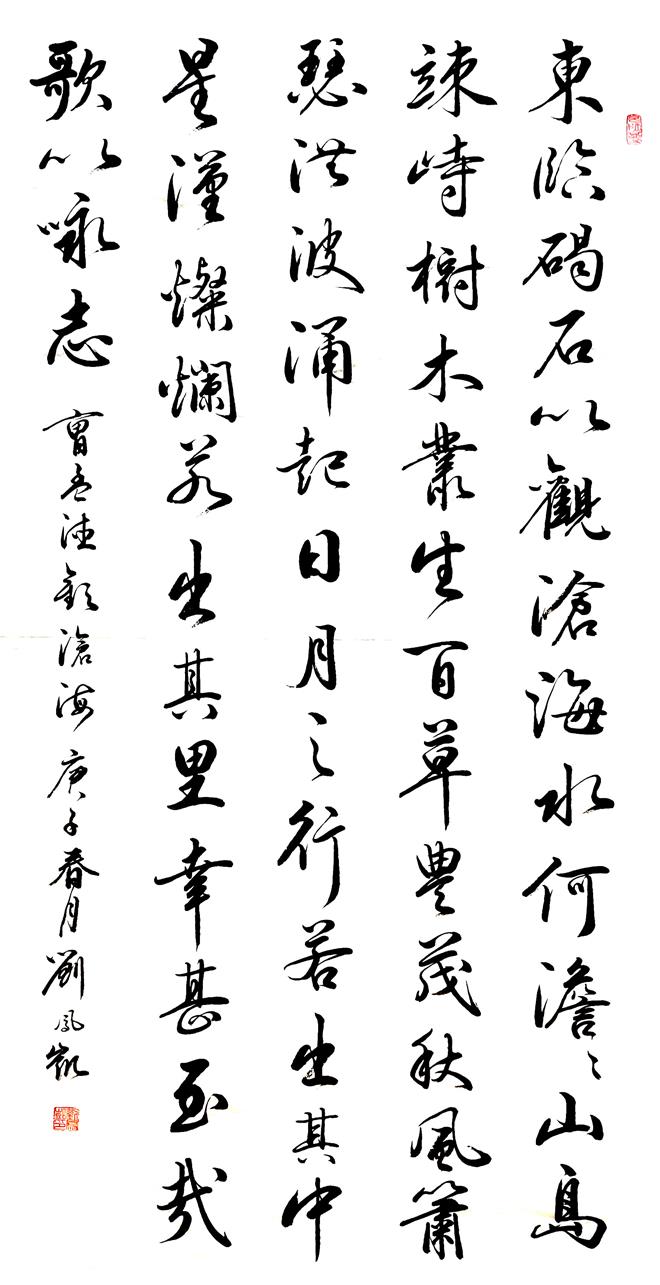 東臨碣石以觀滄海水何澹〻山島
竦峙樹木叢生百草豐茂秋風簫
瑟洪波涌起日月之行若出其中
星漢燦爛若出其里幸甚至哉
歌以咏志
曹孟德觀滄海庚子春月劉鳳凱